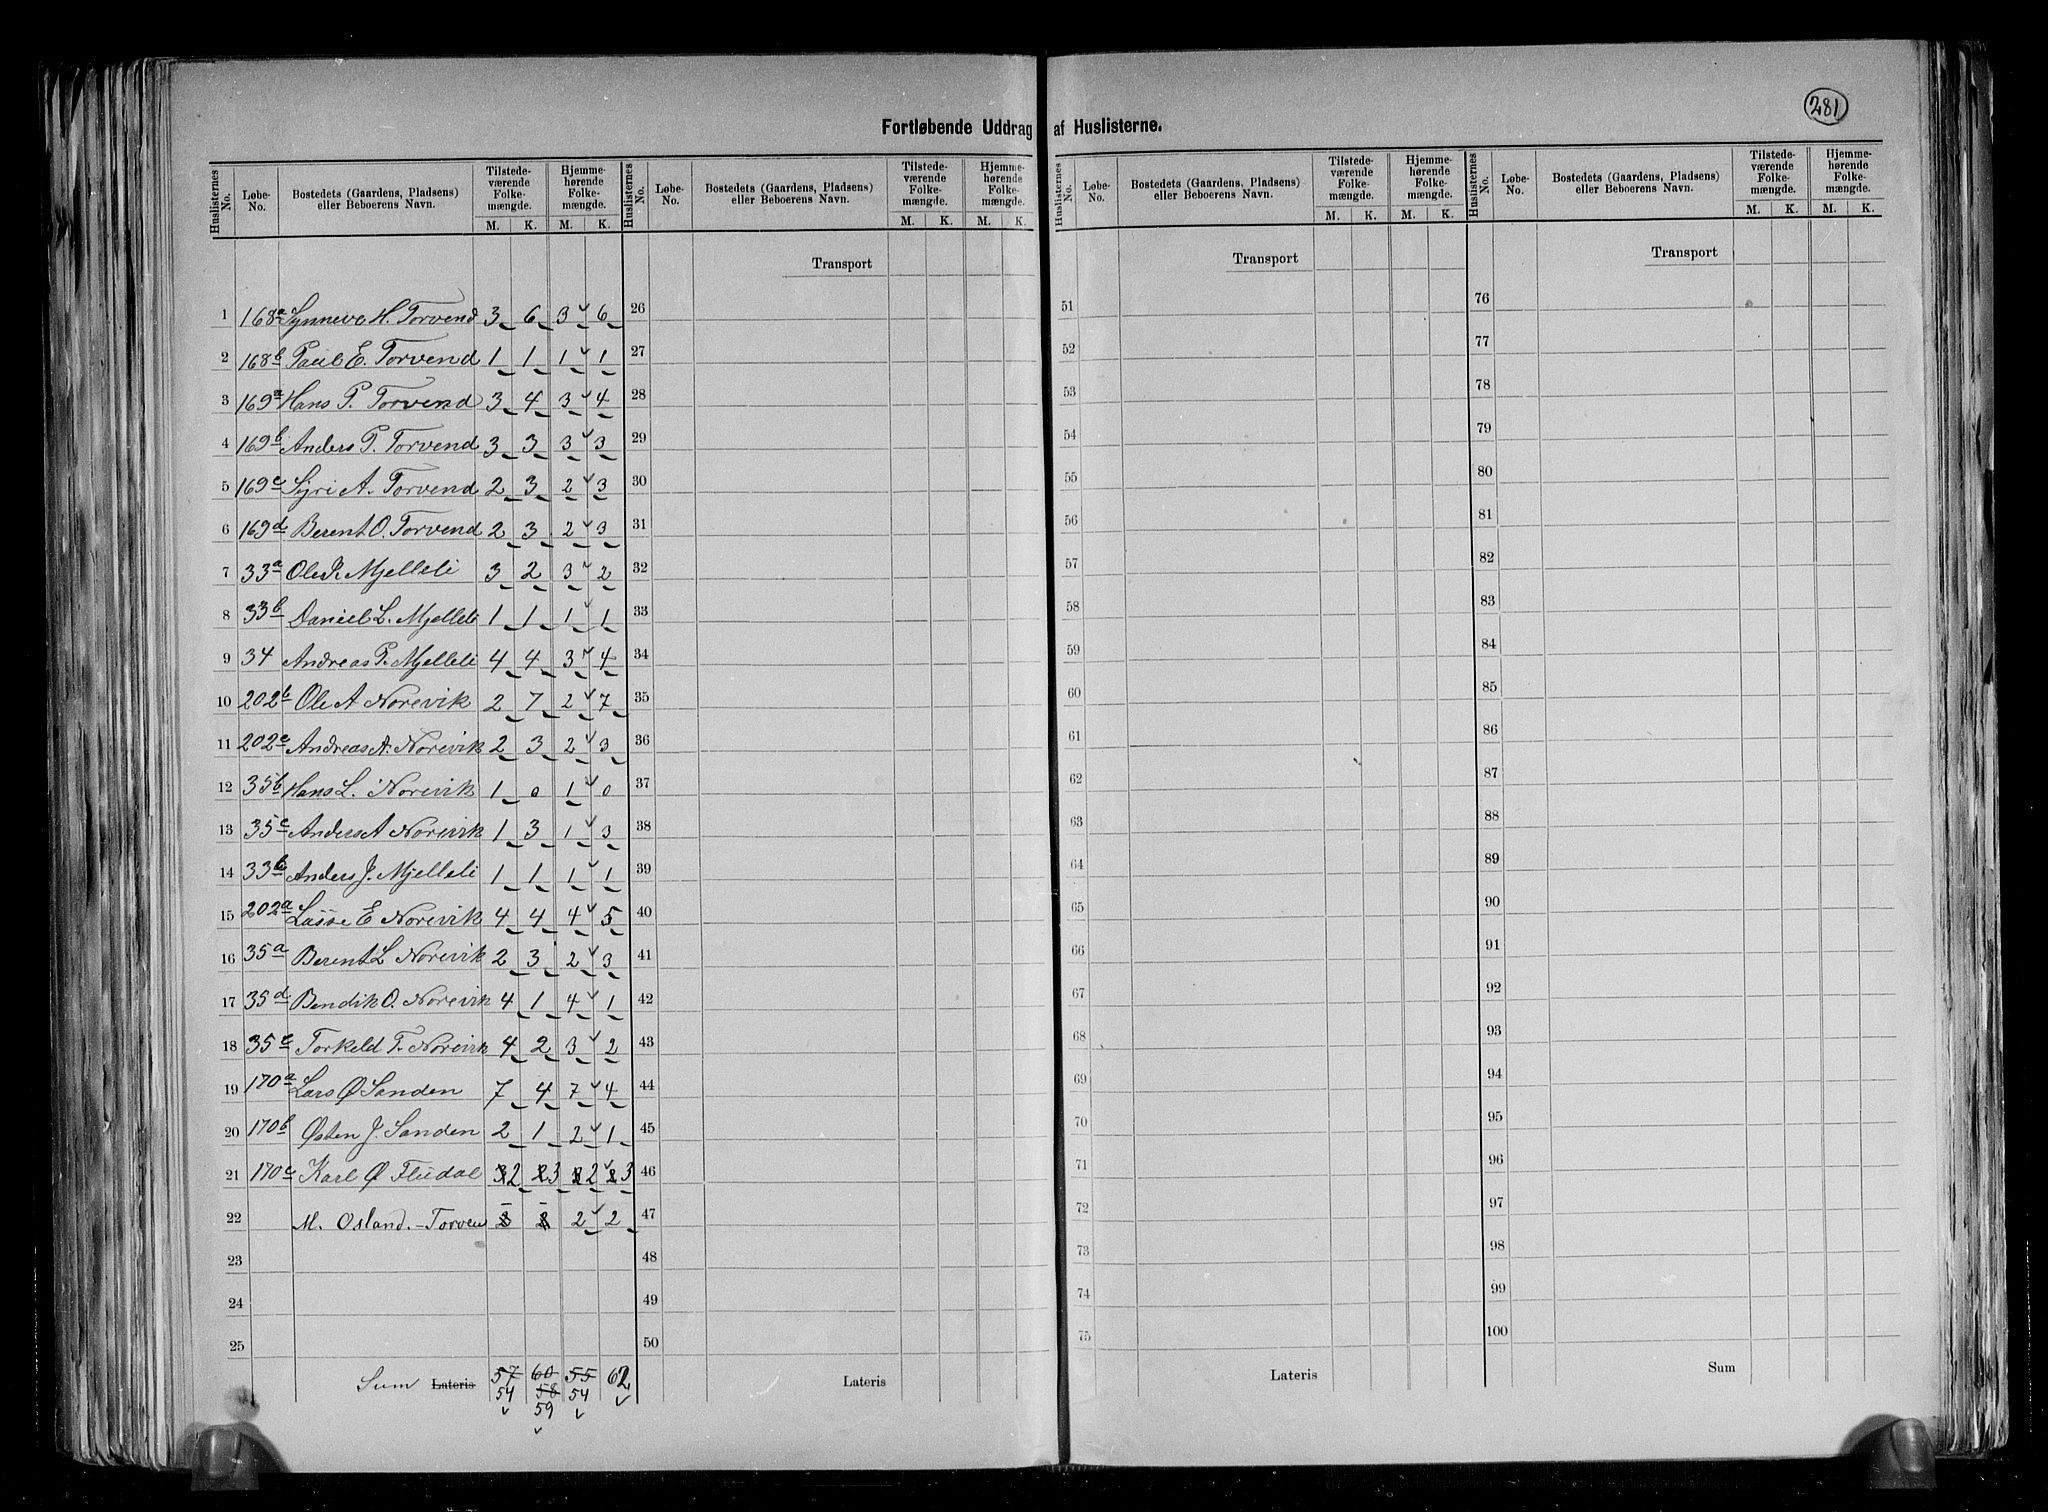 281
Fortløbende Uddrag af Huslisterne.
Huslisternes No. Løbe-No. Bostedets (Gaardens, Pladsens) eller Beboerens Navn. Tilstedeværende Folkemængde. M. K. Hjemmehørende Folkemængde. M. K.
Huslisternes No. Løbe-No. Bostedets (Gaardens, Pladsens) eller Beboerens Navn. Tilstedeværende Folkemængde. M. K. Hjemmehørende Folkemængde. M. K.
Huslisternes No. Løbe-No. Bostedets (Gaardens, Pladsens) eller Beboerens Navn. Tilstedeværende Folkemængde. M. K. Hjemmehørende Folkemængde. M. K.
Huslisternes No. Løbe-No. Bostedets (Gaardens, Pladsens) eller Beboerens Navn. Tilstedeværende Folkemængde. M. K. Hjemmehørende Folkemængde. M. K.
Transport Transport Transport
1 168a Synneve H. Torvend 3 6 3 6 26 51 76
2 168b Paul E. Torvend 1 1 1 1 27 52 77
3 169a Hans P. Torvend 3 4 3 4 28 53 78
4 169b Anders P. Torvend 3 3 3 3 29 54 79
5 169c Syri A. Torvend 2 3 2 3 30 55 80
6 169d Berent O. Torvend 2 3 2 3 31 56 81
7 33a Ole P. Mjelleli 3 2 3 2 32 57 82
8 33b Daniel L. Mjelleli 1 1 1 1 33 58 83
9 34 Andreas P. Mjelleli 4 4 3 4 34 59 84
10 202b Ole A Norevik 2 7 2 7 35 60 85
11 202c Andreas A. Norevik 2 3 2 3 36 61 86
12 35b Hans L. Norevik 1 0 1 0 37 62 87
13 35c Anders A Norevik 1 3 1 3 38 63 88
14 33b Anders J. Mjelleli 1 1 1 1 39 64 89
15 202a Lasse E Norevik 4 4 4 5 40 65 90
16 35a Berent L Norevik 2 3 2 3 41 66 91
17 35d Bendik O. Norevik 4 1 4 1 42 67 92
18 35e Torkeld T. Norevik 4 2 3 2 43 68 93
19 170a Lars Ø Sanden 7 4 7 4 44 69 94
20 170b Østen J. Sanden 2 1 2 1 45 70 95
21 170c Karl Ø Fludal 2 3 2 3 46 71 96
22 M. Osland. - Torven - - 2 2 47 72 97
23 48 73 98
24 49 74 99
25 50 75 100
Sum Lateris 57 60 55 62 Lateris Lateris Sum
54 58 54
59